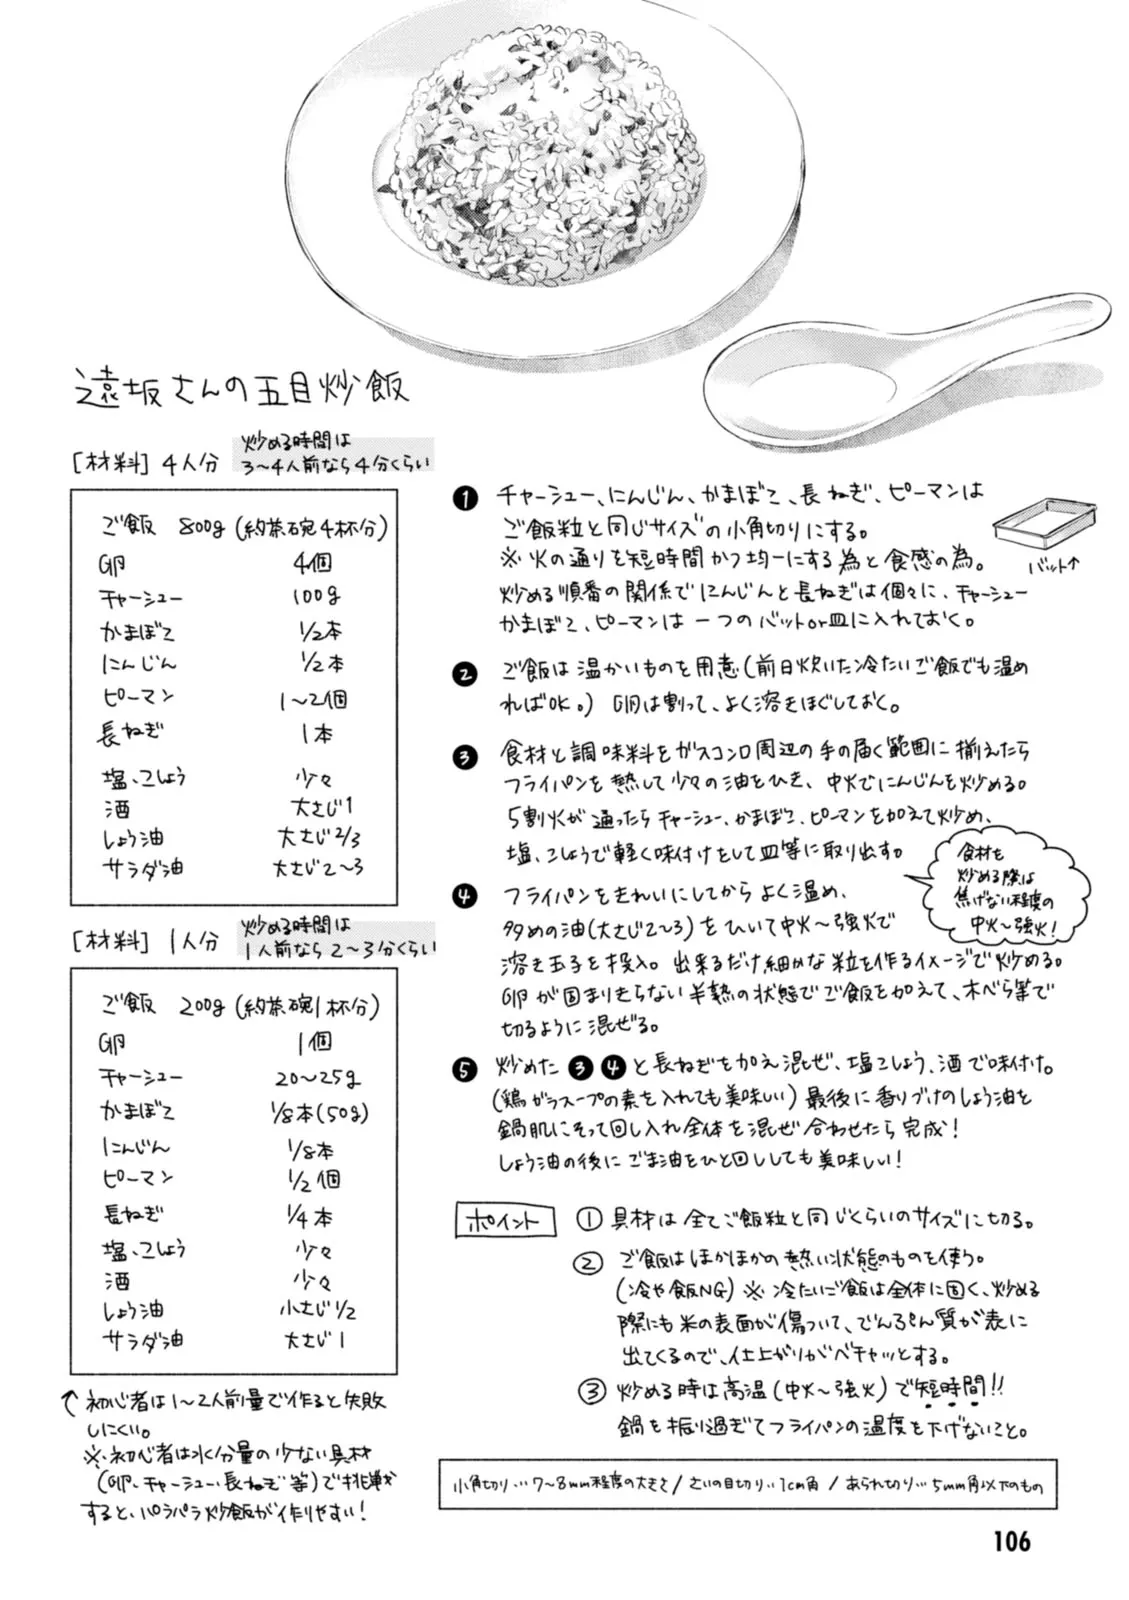 遠坂さんの五目炒飯
[材料] 4人分
炒める時間は
3〜4人前なら4分くらい
ご飯 800g(約茶碗4杯分)
卵 4個
チャーシュー 100g
かまぼこ 1/2本
にんじん 1/2本
ピーマン 1〜2個
長ねぎ 1本
塩、こしょう 少々
酒 大さじ1
しょう油 大さじ2/3
サラダ油 大さじ2〜3
[材料] 1人分
炒める時間は
1人前なら2〜3分くらい
ご飯 200g(約茶碗1杯分)
卵 1個
チャーシュー 20〜25g
かまぼこ 1/8本(50g)
にんじん 1/8本
ピーマン 1/2個
長ねぎ 1/4本
塩、こしょう 少々
酒 少々
しょう油 小さじ1/2
サラダ油 大さじ1
↑初心者は1〜2人前量で作ると失敗
しにくい。
※初心者は水分量の少ない具材
(卵、チャーシュー、長ねぎ等)で挑戦
すると、パラパラ炒飯が作りやすい!
❶ チャーシュー、にんじん、かまぼこ、長ねぎ、ピーマンは
ご飯粒と同じサイズの小角切りにする。
※火の通りを短時間かつ均一にする為と食感の為。
炒める順番の関係でにんじんと長ねぎは個々に、チャーシュー
かまぼこ、ピーマンは一つのバットor皿に入れておく。
バット↑
❷ ご飯は温かいものを用意(前日炊いた冷たいご飯でも温め
ればOK。) 卵は割って、よく溶きほぐしておく。
❸ 食材と調味料をガスコンロ周辺の手の届く範囲に揃えたら
フライパンを熱して少々の油をひき、中火でにんじんを炒める。
5割火が通ったらチャーシュー、かまぼこ、ピーマンを加えて炒め、
塩、こしょうで軽く味付けをして皿等に取り出す。
食材を
炒める際は
焦げない程度の
中火〜強火!
❹ フライパンをきれいにしてからよく温め、
多めの油(大さじ2〜3)をひいて中火〜強火で
溶き玉子を投入。出来るだけ細かな粒を作るイメージで炒める。
卵が固まりきらない半熟の状態でご飯を加えて、木べら等で
切るように混ぜる。
❺ 炒めた❸❹と長ねぎを加え混ぜ、塩こしょう、酒で味付け。
(鶏ガラスープの素を入れても美味しい)最後に香りづけのしょう油を
鍋肌にそって回し入れ全体を混ぜ合わせたら完成!
しょう油の後にごま油をひと回ししても美味しい!
ポイント
①具材は全てご飯粒と同じくらいのサイズに切る。
②ご飯はほかほかの熱い状態のものを使う。
(冷や飯NG)※冷たいご飯は全体に固く、炒める
際にも米の表面が傷ついて、でんぷん質が表に
出てくるので、仕上がりがベチャッとする。
③炒める時は高温(中火〜強火)で短時間!!
鍋を振り過ぎてフライパンの温度を下げないこと。
小角切り…7〜8mm程度の大きさ/さいの目切り…1cm角/あられ切り…5mm角以下のもの
106